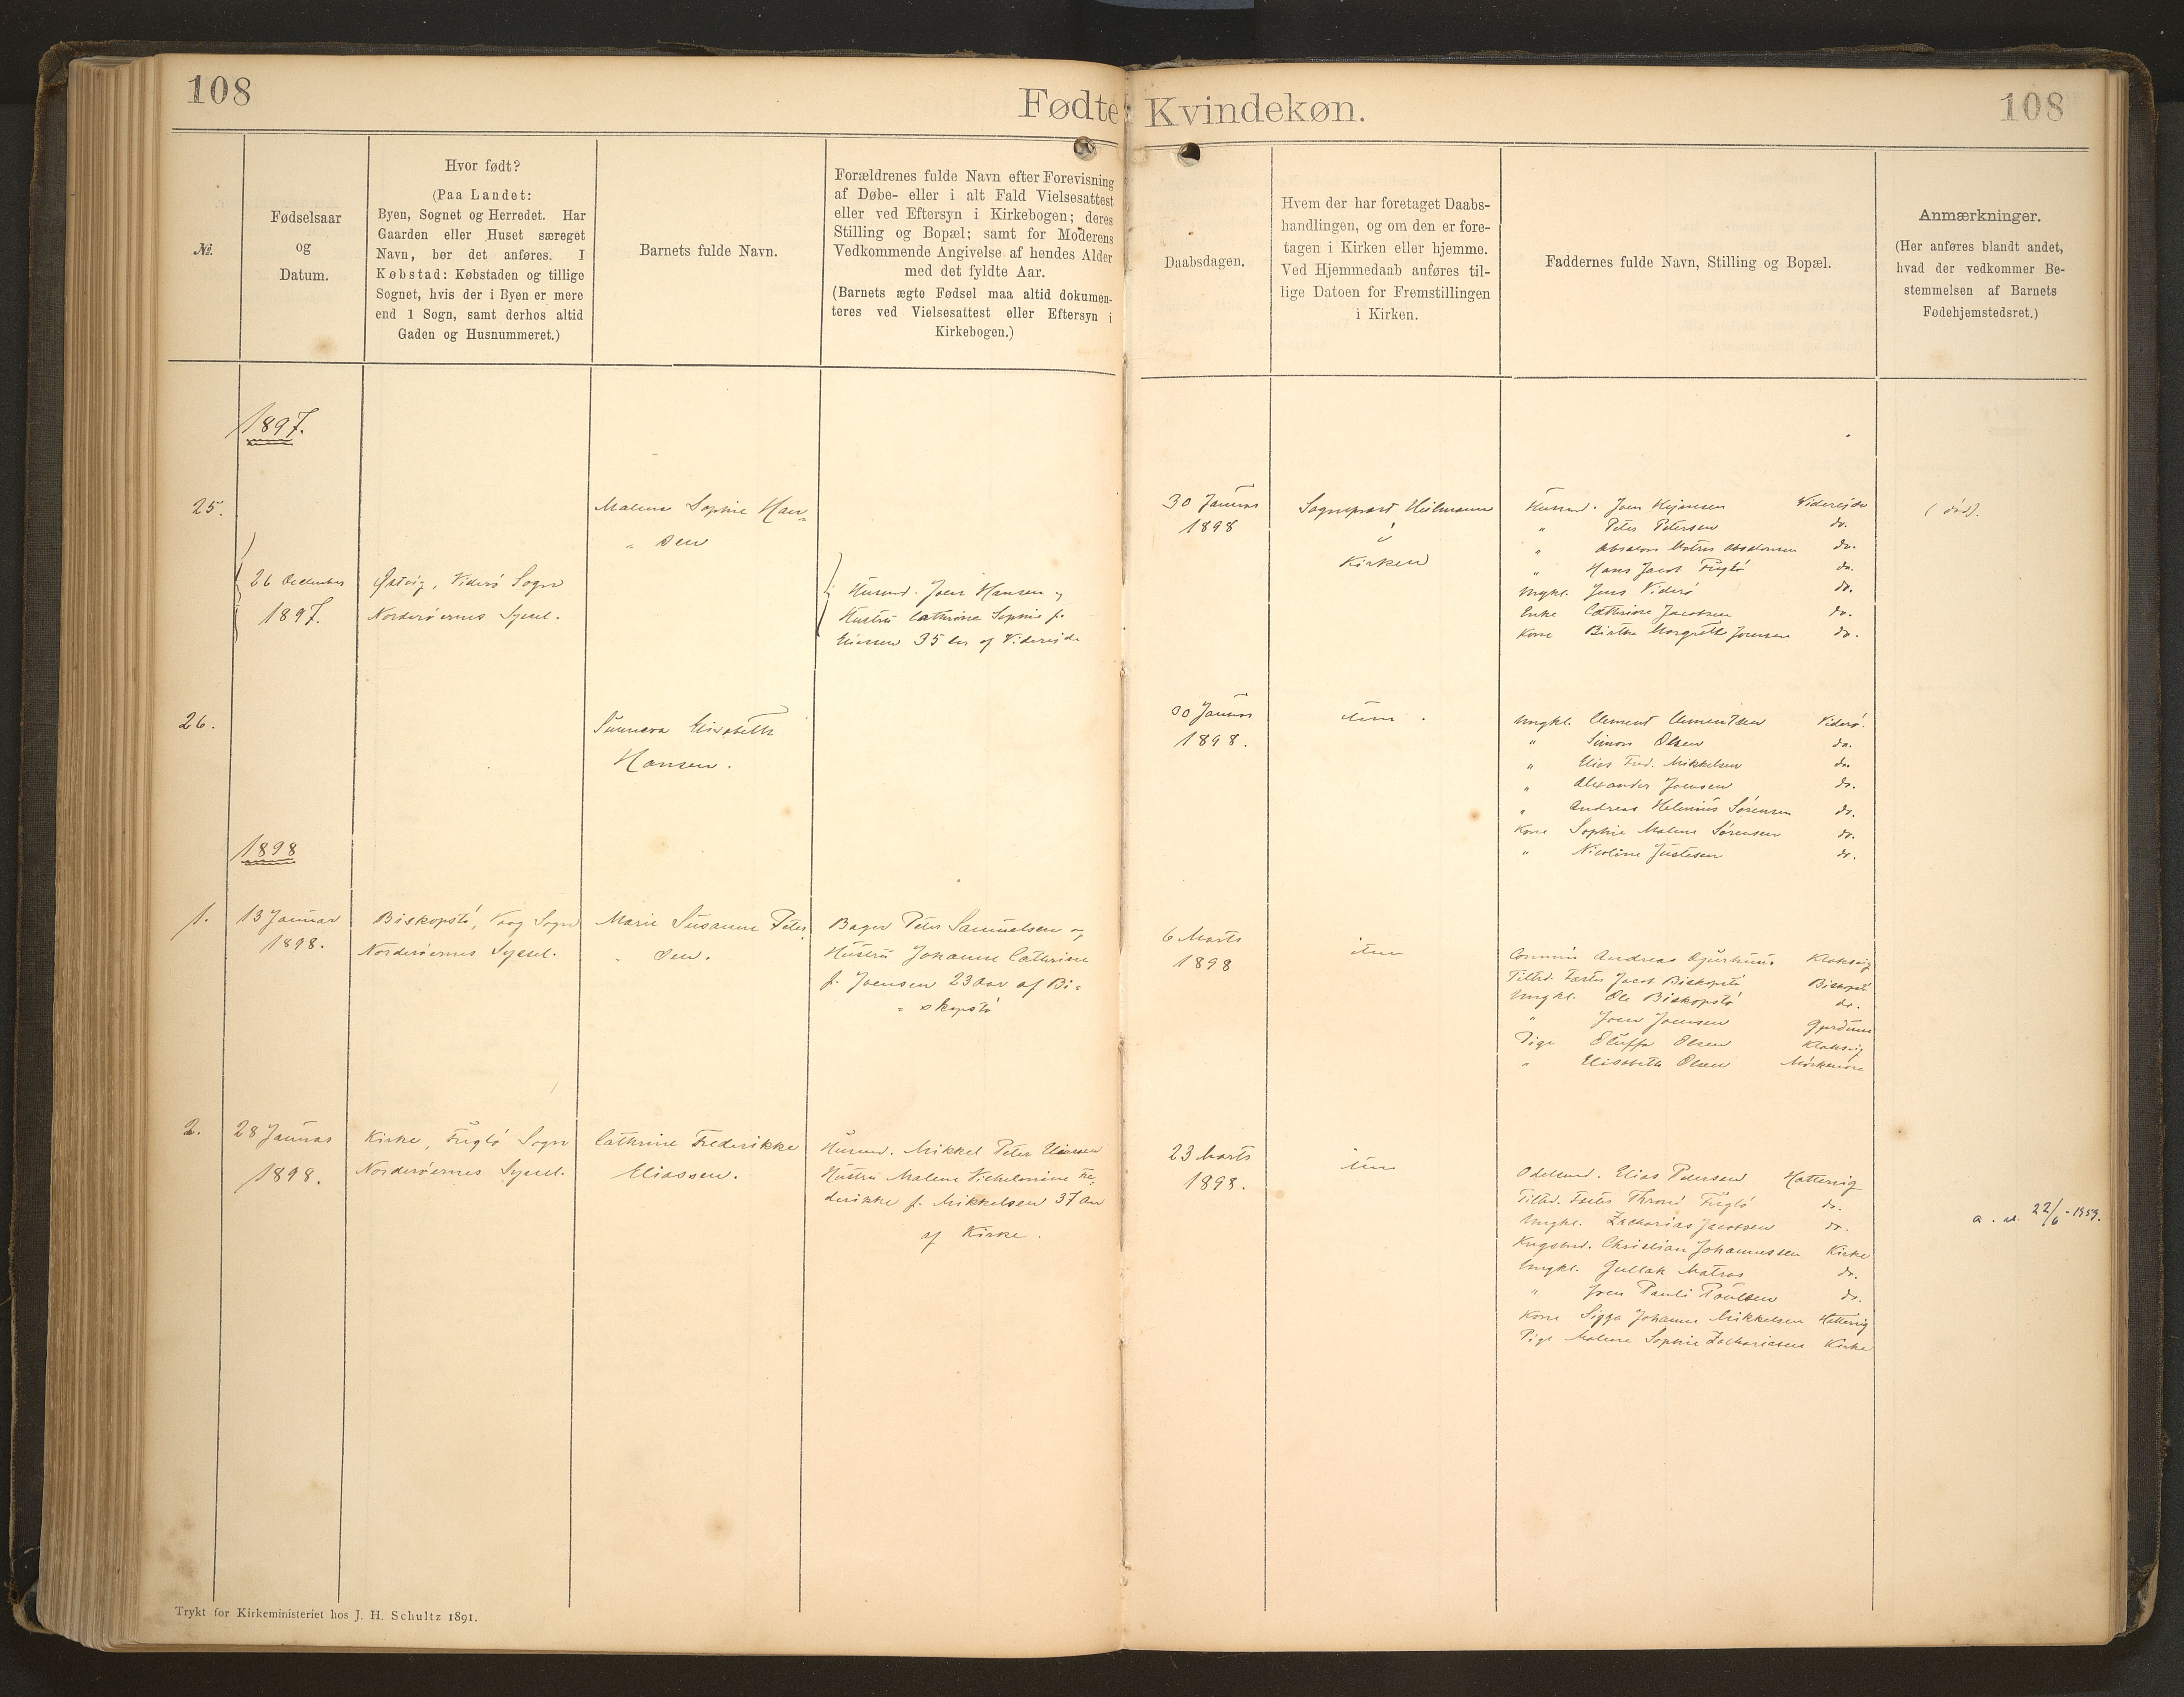 108
Fødte Kvindekøn.
108
№.
Fødselsaar
og
Datum.
Hvor født?
(Paa Landet:
Byen, Sognet og Herredet. Har
Gaarden eller Huset særeget
Navn, bør det anføres. I
Købstad: Købstaden og tillige
Sognet, hvis der i Byen er mere
end 1 Sogn, samt derhos altid
Gaden og Husnummeret.)
Barnets fulde Navn.
Forældrenes fulde Navn efter Forevisning
af Døbe- eller i alt Fald Vielsesattest
eller ved Eftersyn i Kirkebogen; deres
Stilling og Bopæl; samt for Moderens
Vedkommende Angivelse af hendes Alder
med det fyldte Aar.
(Barnets ægte Fødsel maa altid dokumen-
teres ved Vielsesattest eller Eftersyn i
Kirkebogen.)
Daabsdagen.
Hvem der har foretaget Daabs-
handlingen, og om den er fore-
tagen i Kirken eller hjemme.
Ved Hjemmedaab anføres til-
lige Datoen for Fremstillingen
i Kirken.
Faddernes fulde Navn, Stilling og Bopæl.
Anmærkninger.
(Her anføres blandt andet,
hvad der vedkommer Be-
stemmelsen af Barnets
Fødehjemstedsret.)
1897.
25.
26 December
1897.
Østvig, Viderø Sogn
Norderøernes Syssel.
Malene Sophie Han-
" sen
Husmd. Joen Hansen og
Hustru Cathrine Sophie f.
Eliassen 35 Aar af Viderejde
30 Januar
1898
Sognepræst Heilmann
i
Kirken
Husmd. Joen Viderejde
" Peter Petersen do.
" Absalon Matras Absalonsen do.
" Hans Jacob Fuglø do.
Ungkl. Jens Viderø do.
Enke Cathrine Jacobsen do.
Kone Birthe Margrethe Joensen do.
(død).
26.
Sunneva Elisabeth
Hansen.
30 Januar
1898.
item.
Ungkl. Clement Clementsen Viderø.
" Simon Olsen do.
" Elias Fred. Mikkelsen do.
" Alexander Joensen do.
" Andreas Helenius Sørensen do.
Kone Sophie Malene Sørensen do.
" Nicoline Justesen do.
1898
1.
13 Januar
1898.
Biskopstø, Vaag Sogn
Norderøernes Syssel.
Marie Susanne Peter-
" sen.
Bager Peter Samuelsen og
Hustru Johanne Cathrine
f. Joensen 23 Aar af Bi-
" skopstø
6 Marts
1898
item
Commis Andreas Klaksvig
Tiltrd. Fæster Jacob Biskopstø Biskopstø
Ungkl. Ole Biskopstø do.
" Joen Joensen
Pige Olsen Klaksvig
" Elisabeth Olsen Mørkenøre
2.
28 Januar
1898.
Kirke, Fuglø Sogn
Norderøernes Syssel.
Cathrine Frederikke
Eliassen.
Husmd. Mikkel Peter Eliassen
Hustru Malene Vilhelmine Fre-
derikke f. Mikkelsen 37 Aar
af Kirke.
23 Marts
1898.
item
Odelsmd. Elias Petersen Hattervig
Tiltrd. Fæster Throni Fuglø do.
Ungkl. Zacharias Jacobsen do.
Kngsbnd. Christian Johannessen Kirke
Ungkl. Matras do.
" Joen Pauli Poulsen do.
Kone Sigga Johanne Mikkelsen Hattervig
Pige Malene Sophie Zachariasen Kirke
a. at. 22/6-1959.
Trykt for Kirkeministeriet hos J. H. Schultz 1891.